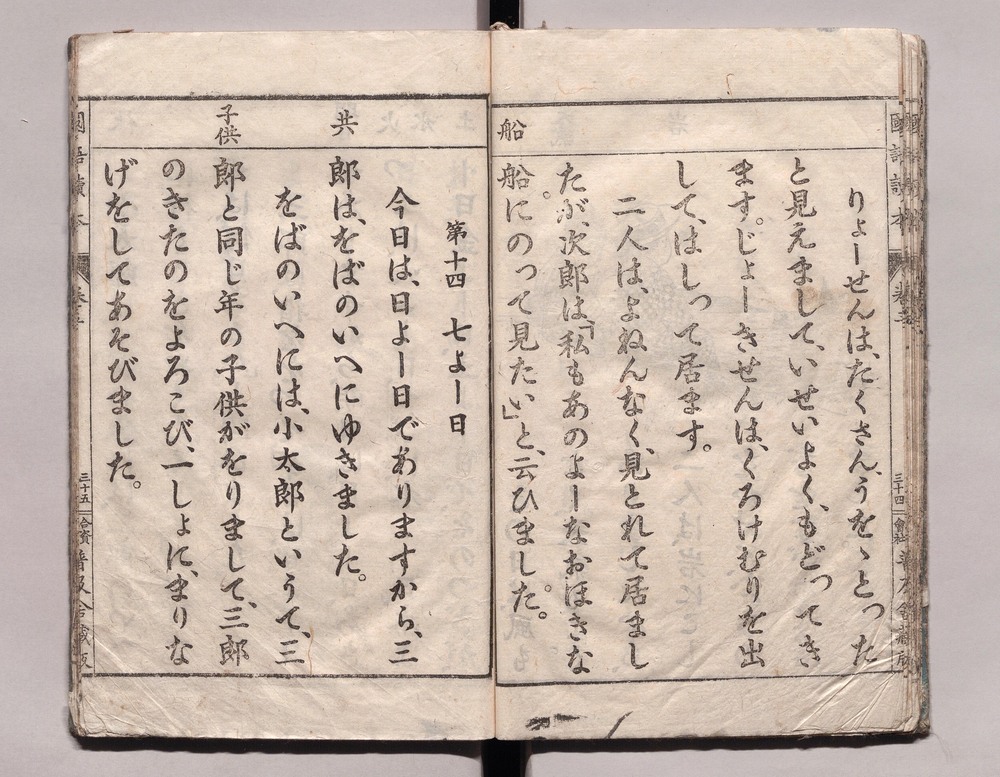 りょーせんは、たくさん、うをゝとった
と見えまして、いせいよく、もどってき
ます。じょーきせんは、くろけむりを出
して、はしって居ます。
二人は、よねんなく、見とれて居まし
たが、次郎は、「私もあのよーなおほきな
船にのって見たい」と、云ひました。
船
第十四 七よー日
今日は、日よー日でありますから、三
郎は、をばのいへにゆきました。
をばのいへには、小太郎というて、三
郎と同じ年の子供がをりまして、三郎
のきたのをよろこび、一しょに、まりな
げをしてあそびました。
共
子供
三十四
三十五
合資 普及舎蔵版